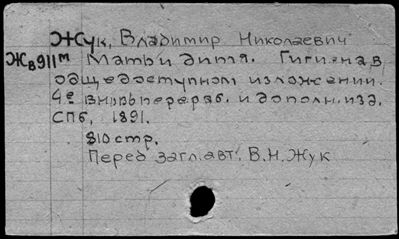 Жук, Владимир Николаевич
Жв911м Мать и дитя. Гигиена в
общедоступном изложении.
4е вновь перераб. и дополн. изд.
СПб, 1891.
810 стр.
Перед загл. авт: В.Н. Жук